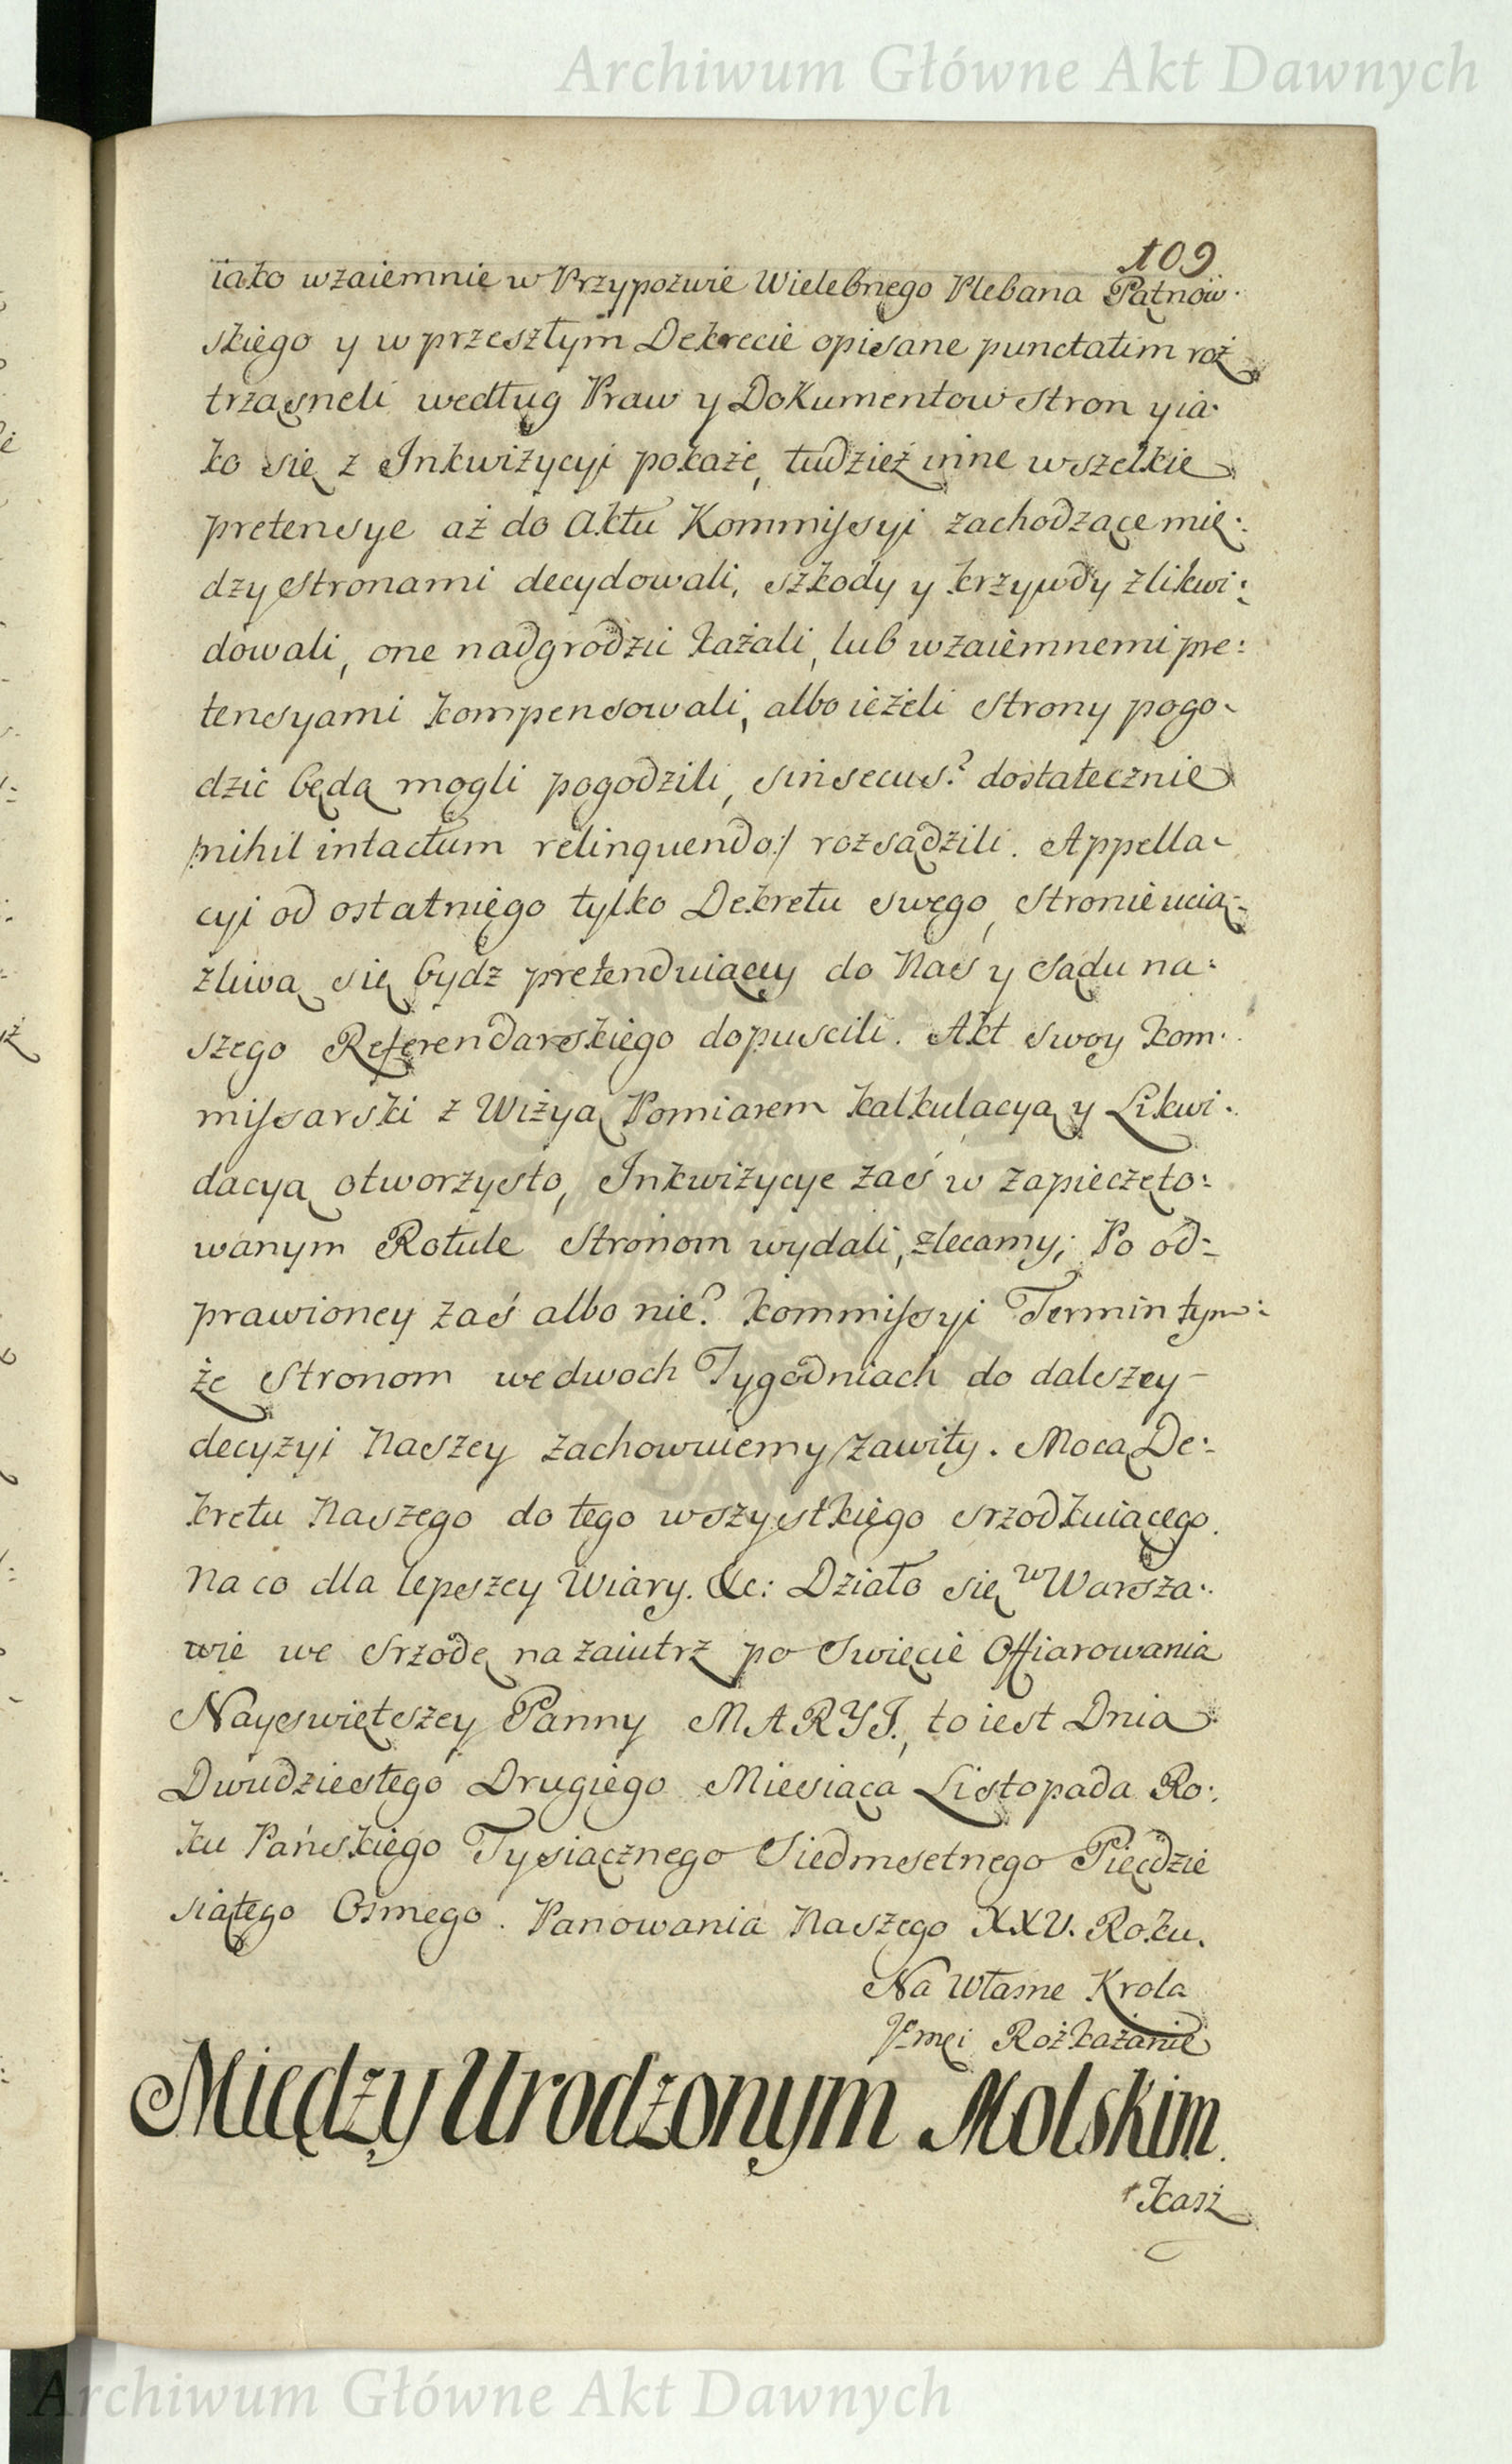 Archiwum Główne Akt Dawnych
109
iako wzaiemnie w Przypozwie Wielebnego Plebana Pątnow-
skiego y w przeszłym Dekrecie opisane punctatim roż
trząsneli według Praw y Dokumentow stron y ia-
ko się z Inkwizycyi pokaże, tudzież inne wszelkie
pretensye aż do Aktu Kommissyi zachodzące mię:
dzy stronami decydowali, szkody y krzywdy zlikwi:
dowali, one nadgrodzic każali, lub wzaiemnemi pre:
tensyami kompensowali, albo ieżeli strony pogo-
dzić będą mogli pogodzili, sin secus? dostatecznie
/:nihil intactum relinquendo:/ rozsądzili. Appella-
cyi od ostatniego tylko Dekretu swego, stronie ucią-
żliwą się bydz pretenduiącey do Nas y Sądu na:
szego Referendarskiego dopuscili. Akt swoy kom-
missarski z Wizyą Pomiarem kalkulacyą y Likwi-
dacyą otworzysto, Inkwizycye zaś w zapieczęto:
wanym Rotule stronom wydali, zlecamy; Po od:
prawioney zaś albo nie? kommissyi Termin tym:
że stronom we dwoch Tygodniach do dalszey
decyzyi Naszey zachowuiemy zawity. Mocą De:
kretu Naszego do tego wszystkiego srzodkuiącego.
Na co dla lepszey Wiary. &c: Działo się w Warsza-
wie we Srzodę nazaiutrz po Swięcie Offiarowania
Nayswiętszey Panny MARYI., to iest Dnia
Dwudziestego Drugiego Miesiąca Listopada Ro:
ku Pańskiego Tysiącznego Siedmsetnego Pięćdzie
siątego Osmego. Panowania Naszego XXV. Roku.
Na Własne Krola
Jmci Rozkazanie
Między Urodzonym Molskim
Karż
Archiwum Główne Akt Dawnych